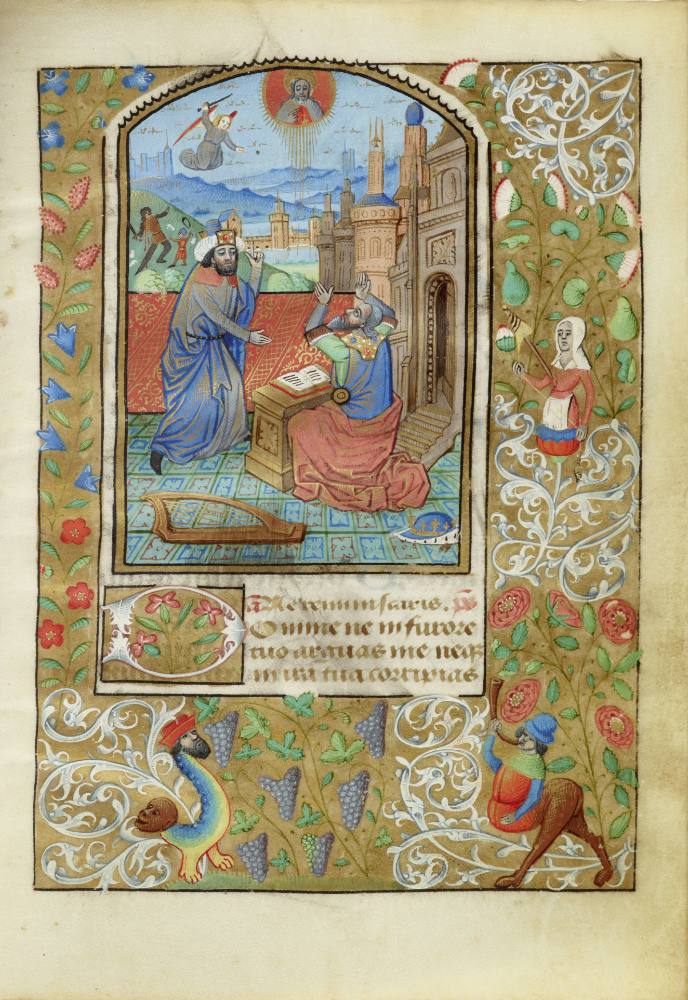 añ Ne reminiscaris. ps
DOmine ne in furore
tuo arguas me neqꝫ
in ira tua corripias